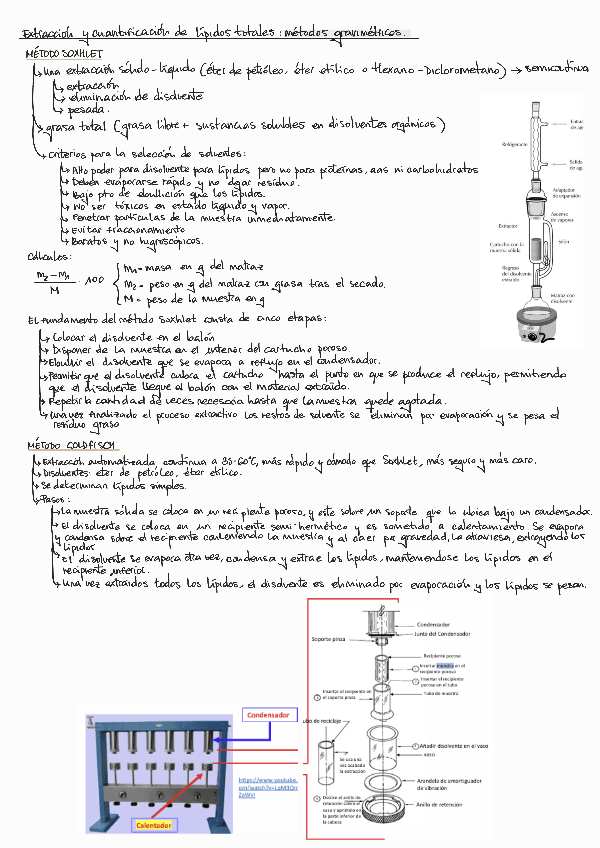 Extracción y cuantificación de lípidos totales: métodos gravimétricos.
MÉTODO SOXHLET
Una extracción sólido-líquido (éter de petróleo, éter etílico o Hexano-Diclorometano) → semicontinua
extracción
eliminación de disolvente
pesada.
grasa total (grasa libre + sustancias solubles en disolventes orgánicos)
Criterios para la selección de solventes:
Alto poder para disolvente para lípidos pero no para proteínas, aas ni carbohidratos
Deben evaporarse rápido y no dejar residuo.
Bajo pto de ebullición que los lípidos.
No ser tóxicos en estado líquido y vapor.
Penetrar partículas de la muestra inmediatamente.
Evitar fraccionamiento
Baratos y no higroscópicos.
Refrigerante
Extrac
de ag
Salida
de agu
Adaptador
de expansión
Ascenso
de vapores
Extractor
Sifón
Cartucho con la
muestra sólida
Regreso
del disolvente
extraído
Matraz con
disolvente
Cálculos:
m₂ - m₁
M
· 100
m₁ = masa en g del matraz
m₂ = peso en g del matraz con grasa tras el secado.
M = peso de la muestra en g
El fundamento del método Soxhlet consta de cinco etapas:
Colocar el disolvente en el balón
Disponer de la muestra en el interior del cartucho poroso
Ebullir el disolvente que se evapora a reflujo en el condensador.
Permitir que el disolvente cubra el cartucho hasta el punto en que se produce el reflujo, permitiendo
que el disolvente llegue al balón con el material extraído.
Repetir la cantidad de veces necesaria hasta que la muestra quede agotada.
Una vez finalizado el proceso extractivo los restos de solvente se eliminan por evaporación y se pesa el
residuo graso
MÉTODO GOLDFISCH
Extracción automatizada, continua a 35-60°C, más rápido y cómodo que Soxhlet, más seguro y más caro.
Disolventes: éter de petróleo, éter etílico.
Se determinan lípidos simples.
Pasos:
La muestra sólida se coloca en un recipiente poroso, y este sobre un soporte que la ubica bajo un condensador.
El disolvente se coloca en un recipiente semi-hermético y es sometido a calentamiento. Se evapora
y condensa sobre el recipiente conteniendo la muestra y al caer por gravedad, la atraviesa, extrayendo los
lípidos
El disolvente se evapora otra vez, condensa y extrae los lípidos, manteniéndose los lípidos en el
recipiente inferior.
Una vez extraídos todos los lípidos, el disolvente es eliminado por evaporación y los lípidos se pesan.
Condensador
Calentador
https://www.youtube.
Condensador
Junta del Condensador
Soporte pinza
Recipiente poroso
Insertar muestra en el
recipiente poroso
Insertar el recipiente
poroso en el tubo
Insertar el recipiente en
el soporte pinza
Tubo de muestra
ubo de reciclaje
Se usa una
vez acabado
la extracción
Añadir disolvente en el vaso
vaso
Arandela de amortiguador
de vibración
Deslice el anillo de
retención sobre el
vaso y apriételo en
la parte inferior de
la cabeza
Anillo de retención